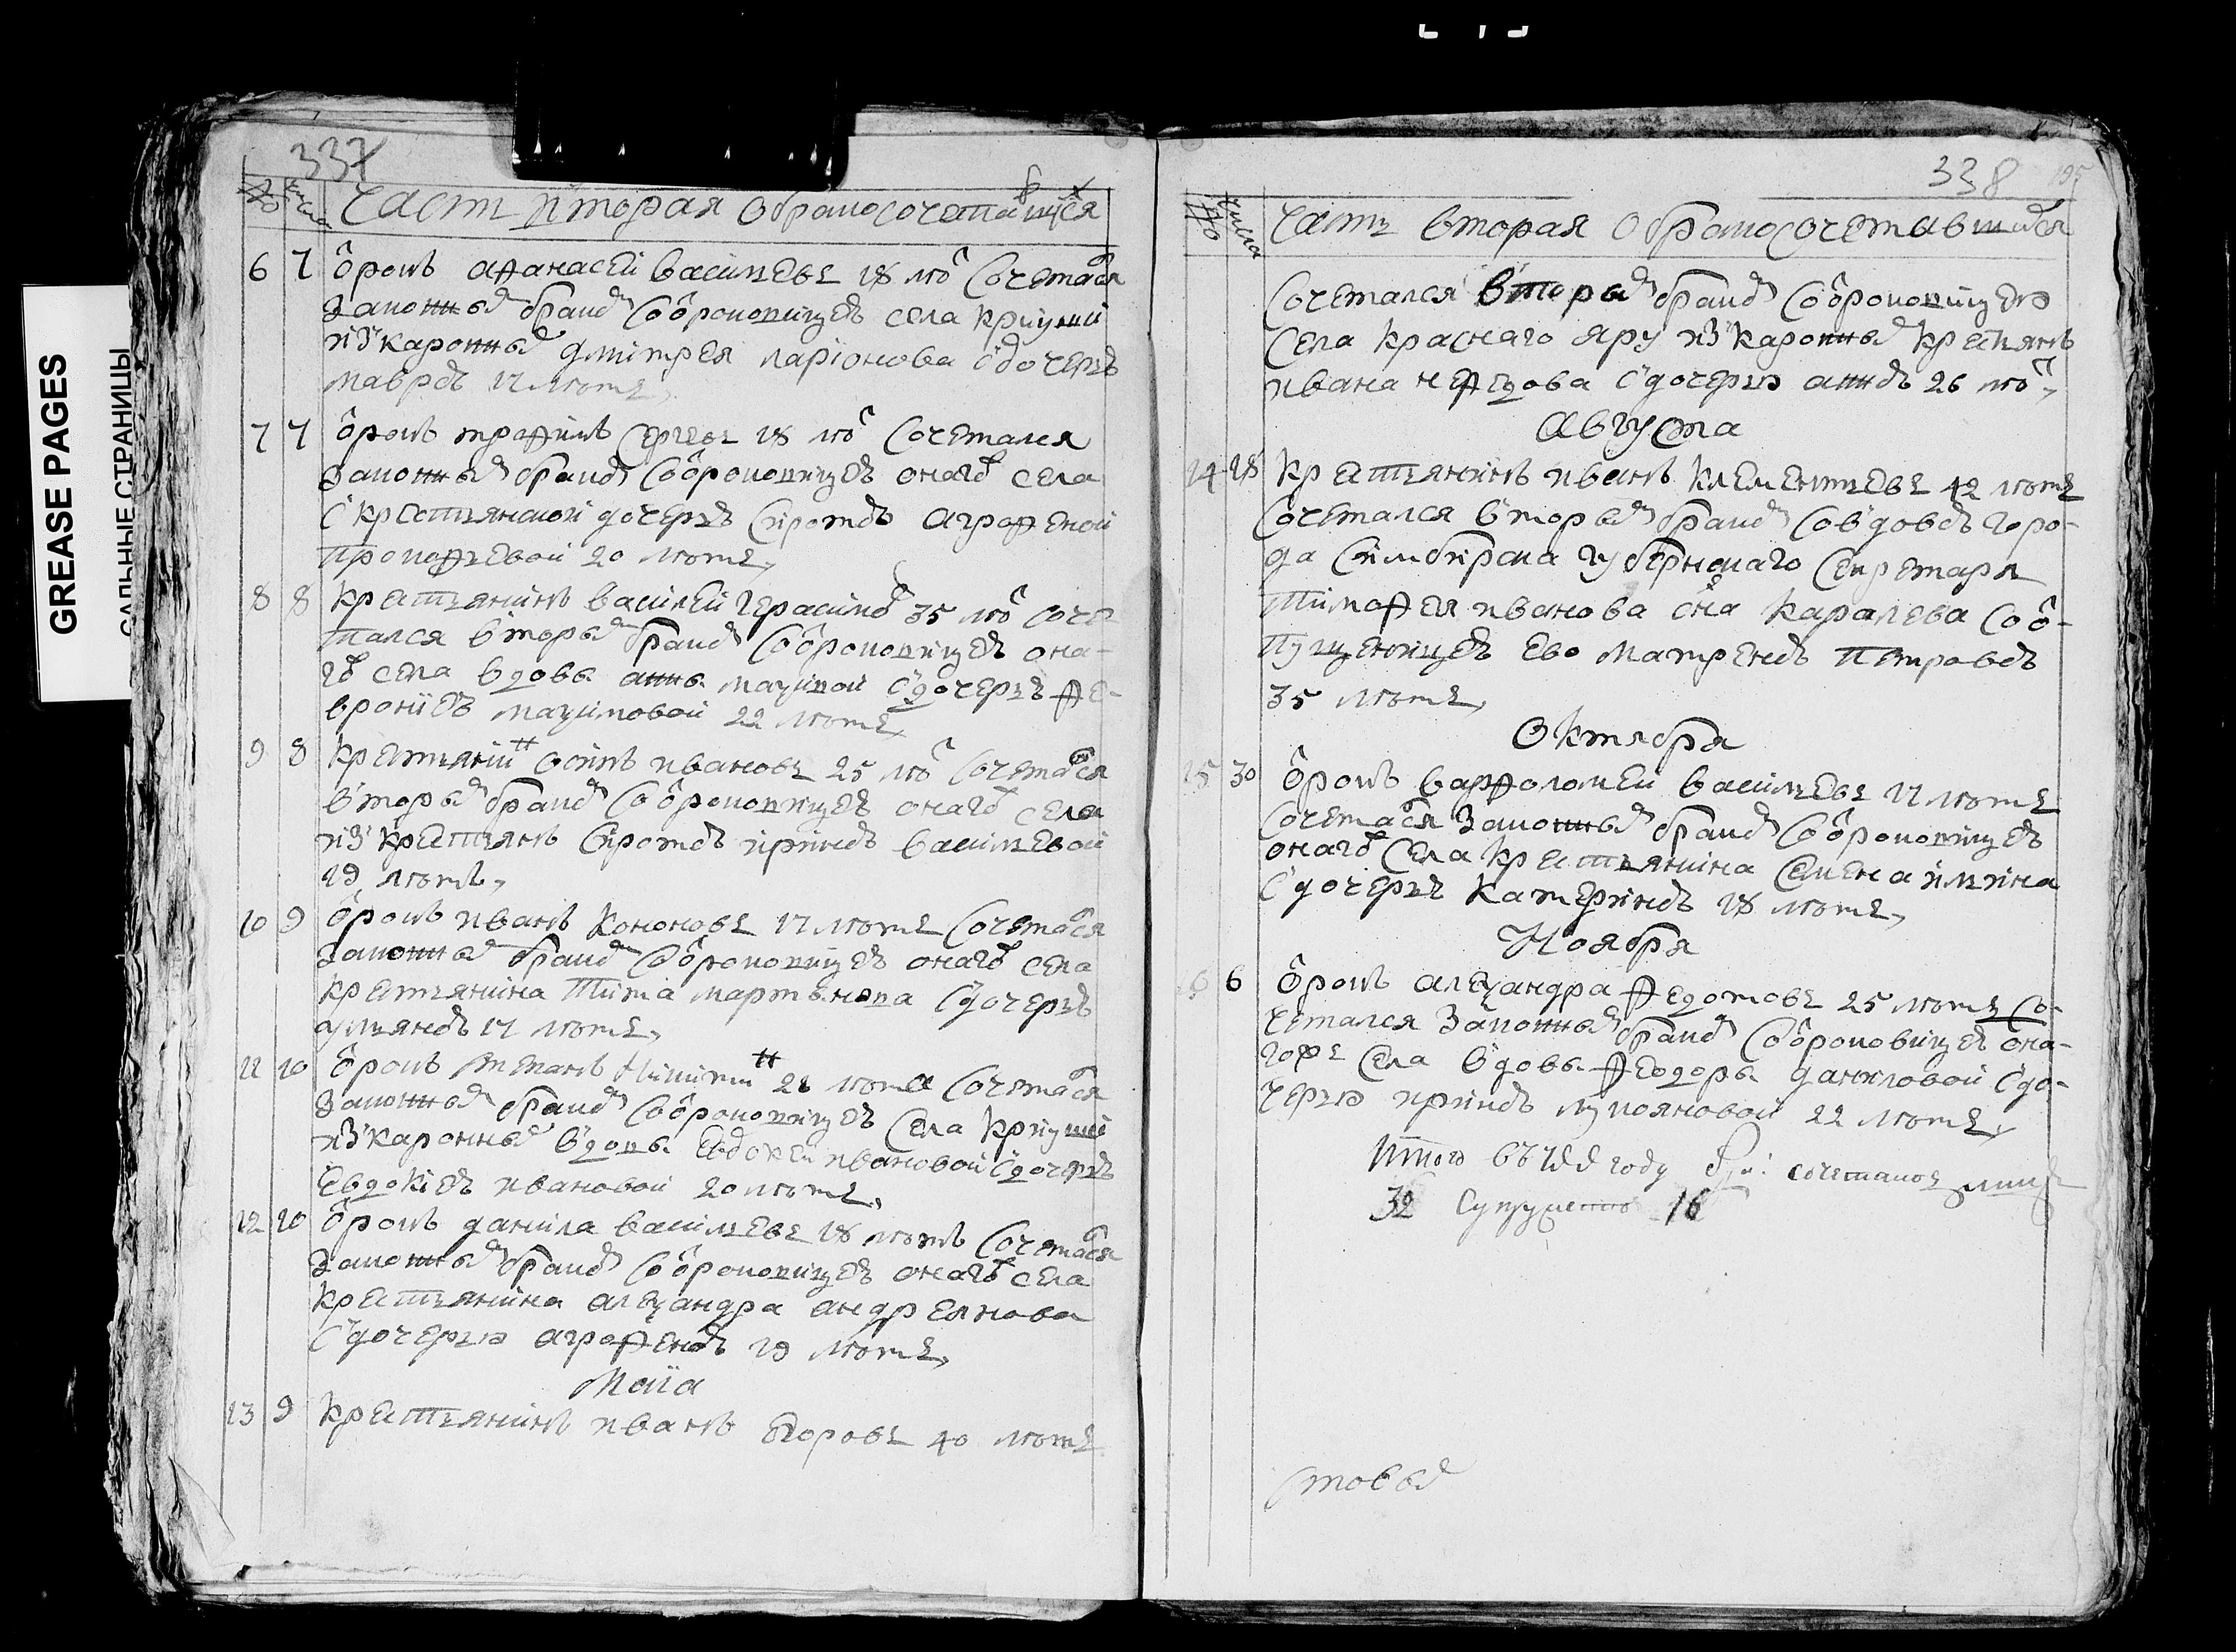 GREASE PAGES
САЛЬНЫЕ СТРАНИЦЫ
337
№ числа Часть вторая обракосочетавшихся
6 7 Отрокъ афанасеи васильевъ 18 летъ Сочетался
Законнымъ бракомъ Сотроковицею села криуши
изъ каронныхъ дмитрея ларионова сдочерью
маврою 17 летъ,
7 7 Отрокъ трофимъ сергеевъ 18 летъ Сочетался
Законнымъ бракомъ Сотроковицею онагожъ села
Скрестьянскои дочерью Сиротою аграфеной
прокофьевой 20 летъ,
8 8 Крестьянинъ василей герасимовъ 35 летъ соче
тался вторымъ бракомъ Сотроковицею она-
гожъ села вдовы анны сдочерью фе-
вроніею максимовой 22 летъ
9 8 Крестьянинъ иванов 25 летъ Сочетался
вторымъ бракомъ Сотроковицею онагожъ села
изъ крестьянъ Сиротою ириною васильевой
19 летъ,
10 9 Отрокъ иванъ Кононовъ 17 летъ Сочетался
Законнымъ бракомъ Сотроковицею онагожъ села
крестьянина Тита мартынова Сдочерью
ульяною 17 летъ,
11 10 Отрокъ степанъ Никитинъ 21 летъ Сочетался
Законнымъ бракомъ Сотроковицею Села Криуши
изъ каронныхъ вдовы Евдокеи ивановой Сдочерью
Евдокіею ивановой 20 летъ,
12 10 Отрокъ данила васильевъ 18 летъ Сочетался
Законнымъ бракомъ Сотроковицею онагожъ села
крестьянина александра андреянова
Сдочерью аграфеною 19 летъ,
Маія
13 9 Крестьянинъ иванъ Егоровъ 40 летъ
338 195
№ числа Часть вторая обракосочетавшихся
Сочетался вторымъ бракомъ Сотроковицею
Села Краснаго яру изъ каронныхъ крестьянъ
ивана нефедова Сдочерью анною 26 летъ,
Августа
14 18 Крестьянинъ иванъ Клементьевъ 42 летъ
Сочетался вторымъ бракомъ Совдовою горо-
да Симбирска губернскаго Секретаря
Тимофея иванова сна Каралева Сот-
пущеницею Ево Матреною Петровою
35 летъ,
Октября
15 30 Отрокъ варфоломеи васильевъ 17 летъ
Сочетался Законнымъ бракомъ Сотроковицею
онагожъ Села Крестьянина Семена ильина
Сдочерью Катериною 18 летъ,
Ноября
16 6 Отрокъ александра Федотовъ 25 летъ Со-
четался Законнымъ бракомъ Сотроковицею она-
гожъ Села вдовы Феодоры даниловой Сдо-
черью ириною лукояновой 22 летъ,
Итого въ году сочеталось лицъ
32 Супружествъ 16